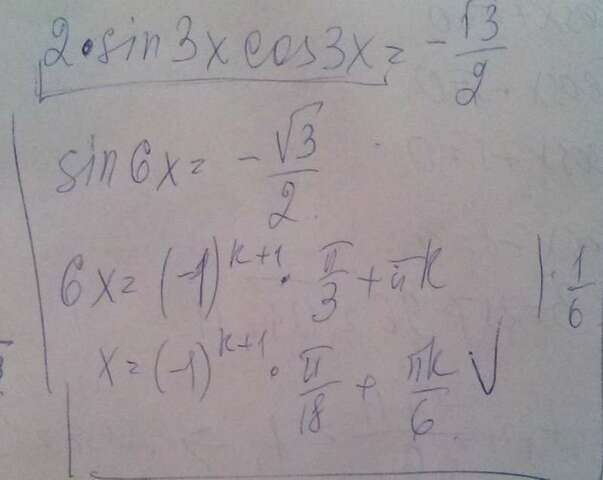 2·sin3xcos3x = -√3/2
sin6x = -√3/2
6x = (-1)^(k+1) · π/3 + πk |·1/6
x = (-1)^(k+1) · π/18 + πk/6 √